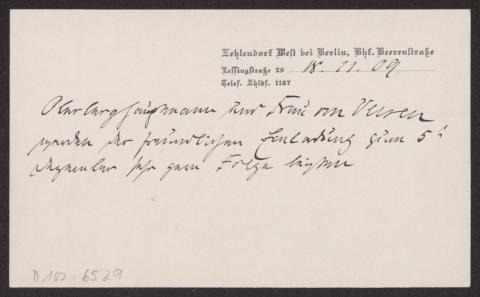 Zehlendorf West bei Berlin, Bhf. Beerenstraße
Lessingstraße 28 18. 11. 09.
Telef. Zhldf. 1187
Oberberghauptmann und Frau von Velsen
werden der freundlichen Einladung zum 5t
Dezember sehr gern Folge leisten
D 102-6529